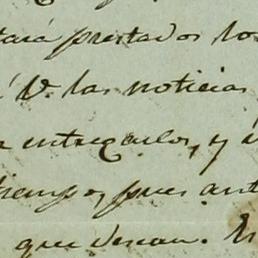 prestados los
á V. las noticias
entregarlos, y
tiempo, pues ant
que desean. En